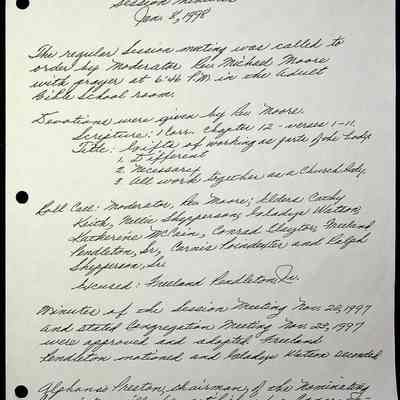 Session Minutes
Jan. 8, 1998
The regular Session meeting was called to
order by Moderator Rev. Michael Moore
with prayer at 6:46 P.M. in the Adult
Bible School room.
Devotions were given by Rev. Moore.
Scripture: 1 Corr. Chapter 12 - verses 1-11.
Title: Gifts of working as parts of the body.
1. Different
2. Necessary
3. All work together as a Church Body.
Roll Call: Moderator, Rev Moore; Elders Cathy
Keith, Nellie Shepperson, Goladys Watson,
Katherine McCain, Conrad Freeland
Pendleton, Sr., Poindexter and Ralph
Shepperson, Sr.
Excused: Freeland Pendleton, Jr.
Minutes of the Session Meeting Nov. 20, 1997
and stated Congregation Meeting Nov. 23, 1997
were approved and adopted. Freeland
Pendleton motioned and Goladys Watson seconded.
Alphonso Preston, chairman, of the Nominating